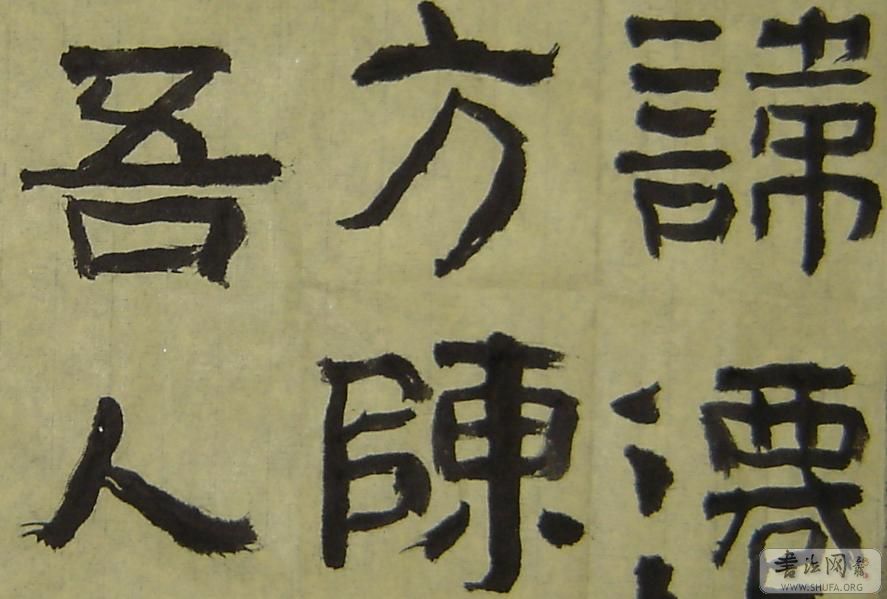 諱遷
方陳
吾人
書法网
WWW.SHUFA.ORG